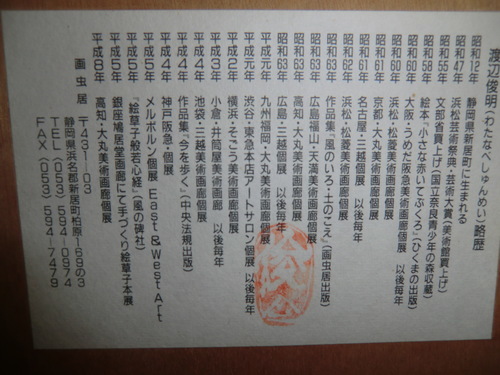 渡辺俊明(わたなべしゅんめい)略歴
昭和12年 静岡県新居町に生まれる
昭和47年 浜松芸術祭典、芸術大賞(美術館買上げ)
昭和55年 文部省買上げ(国立奈良青少年の森収蔵)
昭和58年 絵本『小さな赤いてぶくろ』(ひくまの出版)
昭和60年 大阪・うめだ阪急美術画廊個展 以後毎年
昭和60年 浜松・松菱美術画廊個展 以後毎年
昭和61年 京都・大丸美術画廊個展
昭和61年 名古屋・三越個展 以後毎年
昭和62年 浜松・松菱美術画廊個展
昭和63年 作品集『風のいろ・土のこえ』(画虫居出版)
昭和63年 広島福山・天満美術画廊個展
昭和63年 高知・大丸美術画廊個展
昭和63年 広島・三越個展 以後毎年
平成元年 九州福岡・大丸美術画廊個展
平成元年 渋谷・東急本店アートサロン個展 以後毎年
平成2年 横浜・そごう美術画廊個展
平成3年 小倉・井筒屋美術画廊個展 以後毎年
平成4年 池袋・三越美術画廊個展 以後毎年
平成4年 作品集『今を歩く』(中央法規出版)
平成4年 神戸阪急・個展
平成5年 メルボルン個展 East & West Art
平成5年 『絵草子般若心経』(風の碑社)
平成5年 銀座鳩居堂画廊にて手づくり絵草子本展
平成8年 高知・大丸美術画廊個展
画虫居 〒431-03
静岡県浜名郡新居町柏原169の3
TEL (053) 594-0974
FAX (053) 594-7479